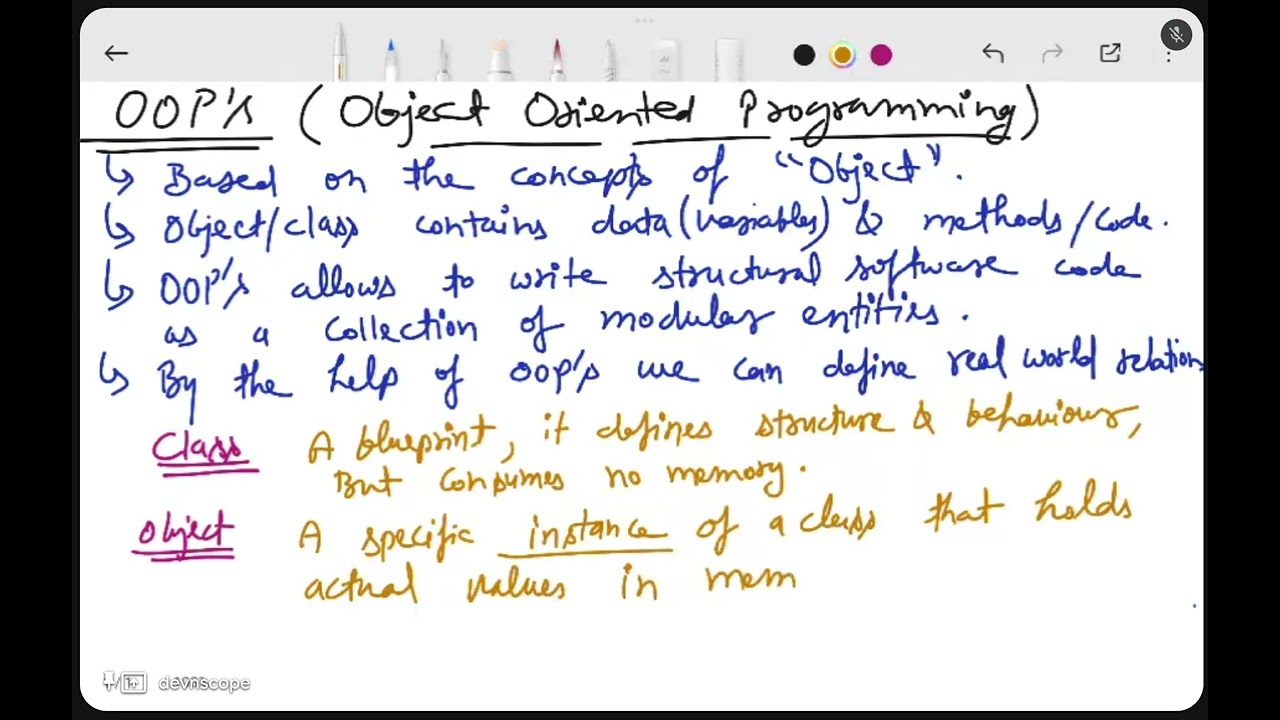 OOP's (Object Oriented Programming)
↳ Based on the concepts of "Object".
↳ Object/class contains data (variables) & methods/code.
↳ OOP's allows to write structural software code
as a collection of modular entities.
↳ By the help of OOP's we can define real world relation
Class A blueprint, it defines structure & behaviour,
But consumes no memory.
Object A specific instance of a class that holds
actual values in mem
devnscope